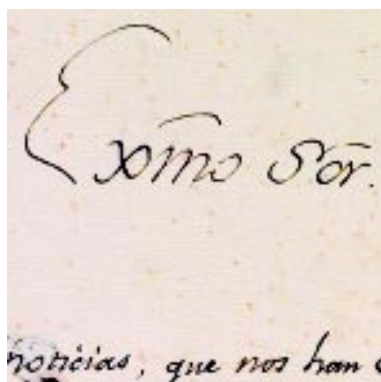 Exmo Sor.
noticias, que nos han